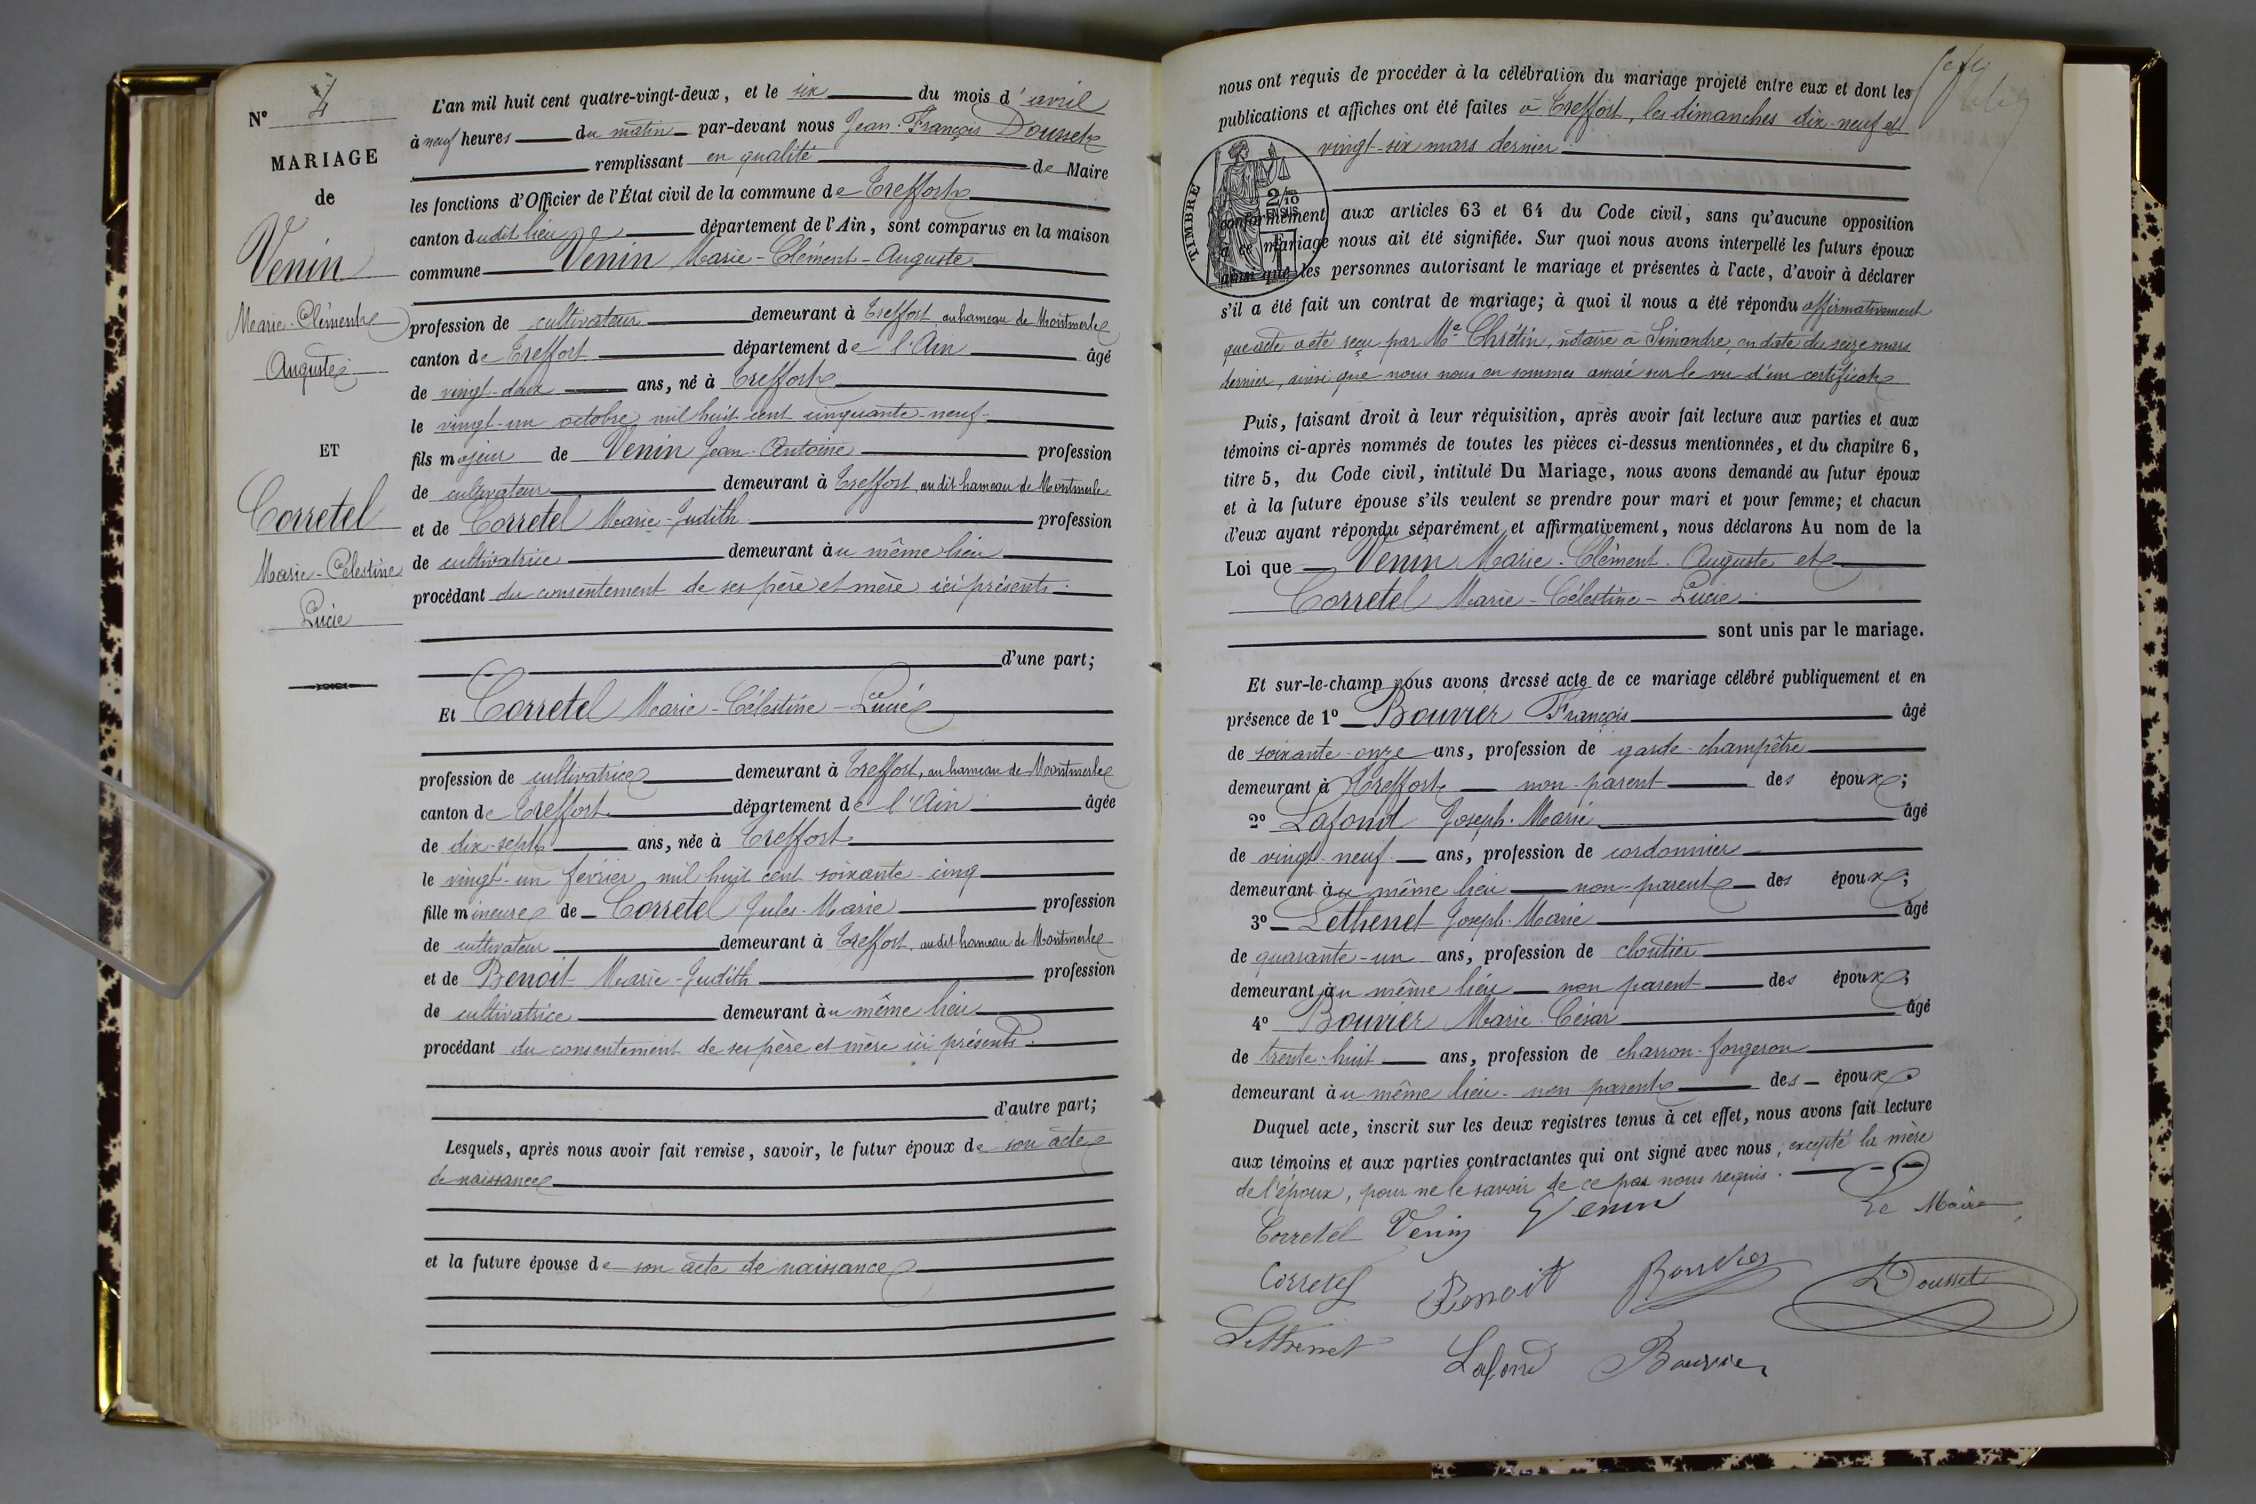 N° 4
MARIAGE
de
Venin
Marie-Clément
Auguste
ET
Corretel
Marie-Célestine
Lucie
L'an mil huit cent quatre-vingt-deux, et le six du mois d'avril
à neuf heures du matin par-devant nous Jean-François Dousset
remplissant en qualité de Maire
les fonctions d'Officier de l'État civil de la commune de Treffort
canton dudit lieu département de l'Ain, sont comparus en la maison
commune Venin Marie-Clément-Auguste
profession de cultivateur demeurant à Treffort, au hameau de Montmerle
canton de Treffort département de l'Ain âgé
de vingt-deux ans, né à Treffort
le vingt-un octobre mil huit cent cinquante-neuf
fils majeur de Venin Jean-Antoine profession
de cultivateur demeurant à Treffort, audit hameau de Montmerle
et de Corretel Marie-Judith profession
de cultivatrice demeurant au même lieu
procédant du consentement de ses père et mère ici présents.
d'une part;
Et Corretel Marie-Célestine-Lucie
profession de cultivatrice demeurant à Treffort, au hameau de Montmerle
canton de Treffort département de l'Ain âgée
de dix-sept ans, née à Treffort
le vingt-un février mil huit cent soixante-cinq
fille mineure de Corretel Jules-Marie profession
de cultivateur demeurant à Treffort, audit hameau de Montmerle
et de Benoit Marie-Judith profession
de cultivatrice demeurant au même lieu
procédant du consentement de ses père et mère ici présents.
d'autre part;
Lesquels, après nous avoir fait remise, savoir, le futur époux de son acte
de naissance
et la future épouse de son acte de naissance
nous ont requis de procéder à la célébration du mariage projeté entre eux et dont les
publications et affiches ont été faites à Treffort, les dimanches dix-neuf et
vingt-six mars dernier
TIMBRE
2/10
EN SUS
conformément aux articles 63 et 64 du Code civil, sans qu'aucune opposition
à ce mariage nous ait été signifiée. Sur quoi nous avons interpellé les futurs époux
ainsi que les personnes autorisant le mariage et présentes à l'acte, d'avoir à déclarer
s'il a été fait un contrat de mariage; à quoi il nous a été répondu affirmativement
que acte a été reçu par Me Chrétin, notaire à Simandre, en date du seize mars
dernier, ainsi que nous nous en sommes assuré sur le vu d'un certificat
Puis, faisant droit à leur réquisition, après avoir fait lecture aux parties et aux
témoins ci-après nommés de toutes les pièces ci-dessus mentionnées, et du chapitre 6,
titre 5, du Code civil, intitulé Du Mariage, nous avons demandé au futur époux
et à la future épouse s'ils veulent se prendre pour mari et pour femme; et chacun
d'eux ayant répondu séparément et affirmativement, nous déclarons Au nom de la
Loi que Venin Marie-Clément-Auguste et
Corretel Marie-Célestine-Lucie
sont unis par le mariage.
Et sur-le-champ nous avons dressé acte de ce mariage célébré publiquement et en
présence de 1° Bouvier François âgé
de soixante-onze ans, profession de garde-champêtre
demeurant à Treffort non-parent des époux;
2° Lafond Joseph-Marie âgé
de vingt-neuf ans, profession de cordonnier
demeurant au même lieu non-parent des époux;
3° Lethenet Joseph-Marie âgé
de quarante-un ans, profession de cloutier
demeurant au même lieu non parent des époux;
4° Bouvier Marie-César âgé
de trente-huit ans, profession de charron-forgeron
demeurant au même lieu non parent des époux.
Duquel acte, inscrit sur les deux registres tenus à cet effet, nous avons fait lecture
aux témoins et aux parties contractantes qui ont signé avec nous, excepté la mère
de l'époux, pour ne le savoir de ce par nous requis.
Corretel Venin Venin Le Maire,
Corretel Benoit Bouvier Dousset
Lethenet Lafond Bouvier